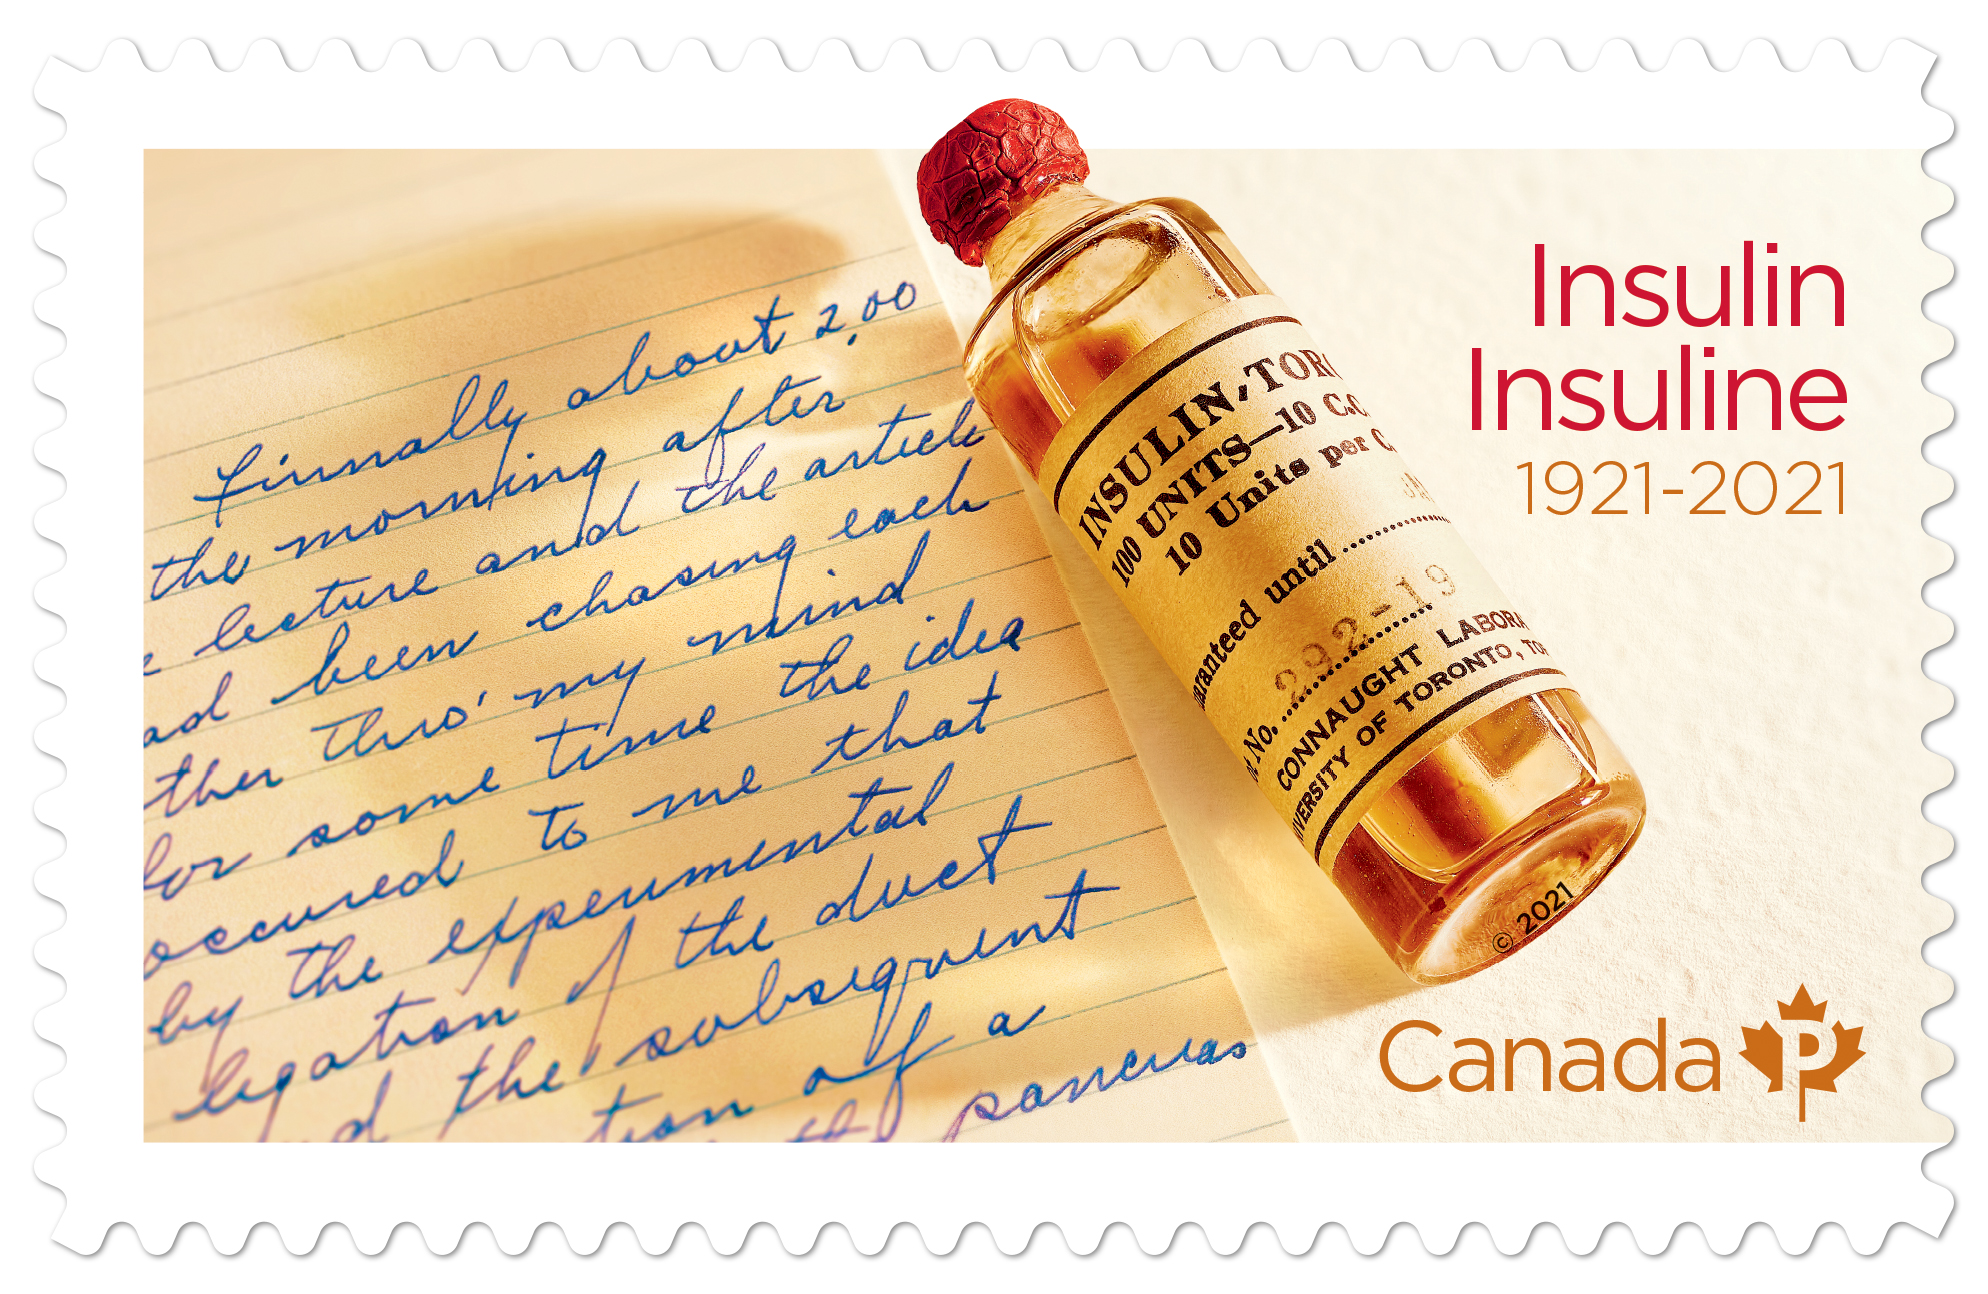 Finnally about 2,00
the morning after
lecture and the article
ad been chasing each
ther thro' my mind
for some time the idea
occured to me that
by the experimental
ligation of the duct
d the subsequent
tion of a
the pancreas
INSULIN, TORO
100 UNITS—10 C.C.
10 Units per C.
JAN
aranteed until
t No. 292-19
CONNAUGHT LABORA
IVERSITY OF TORONTO, TO
© 2021
Insulin
Insuline
1921-2021
Canada P